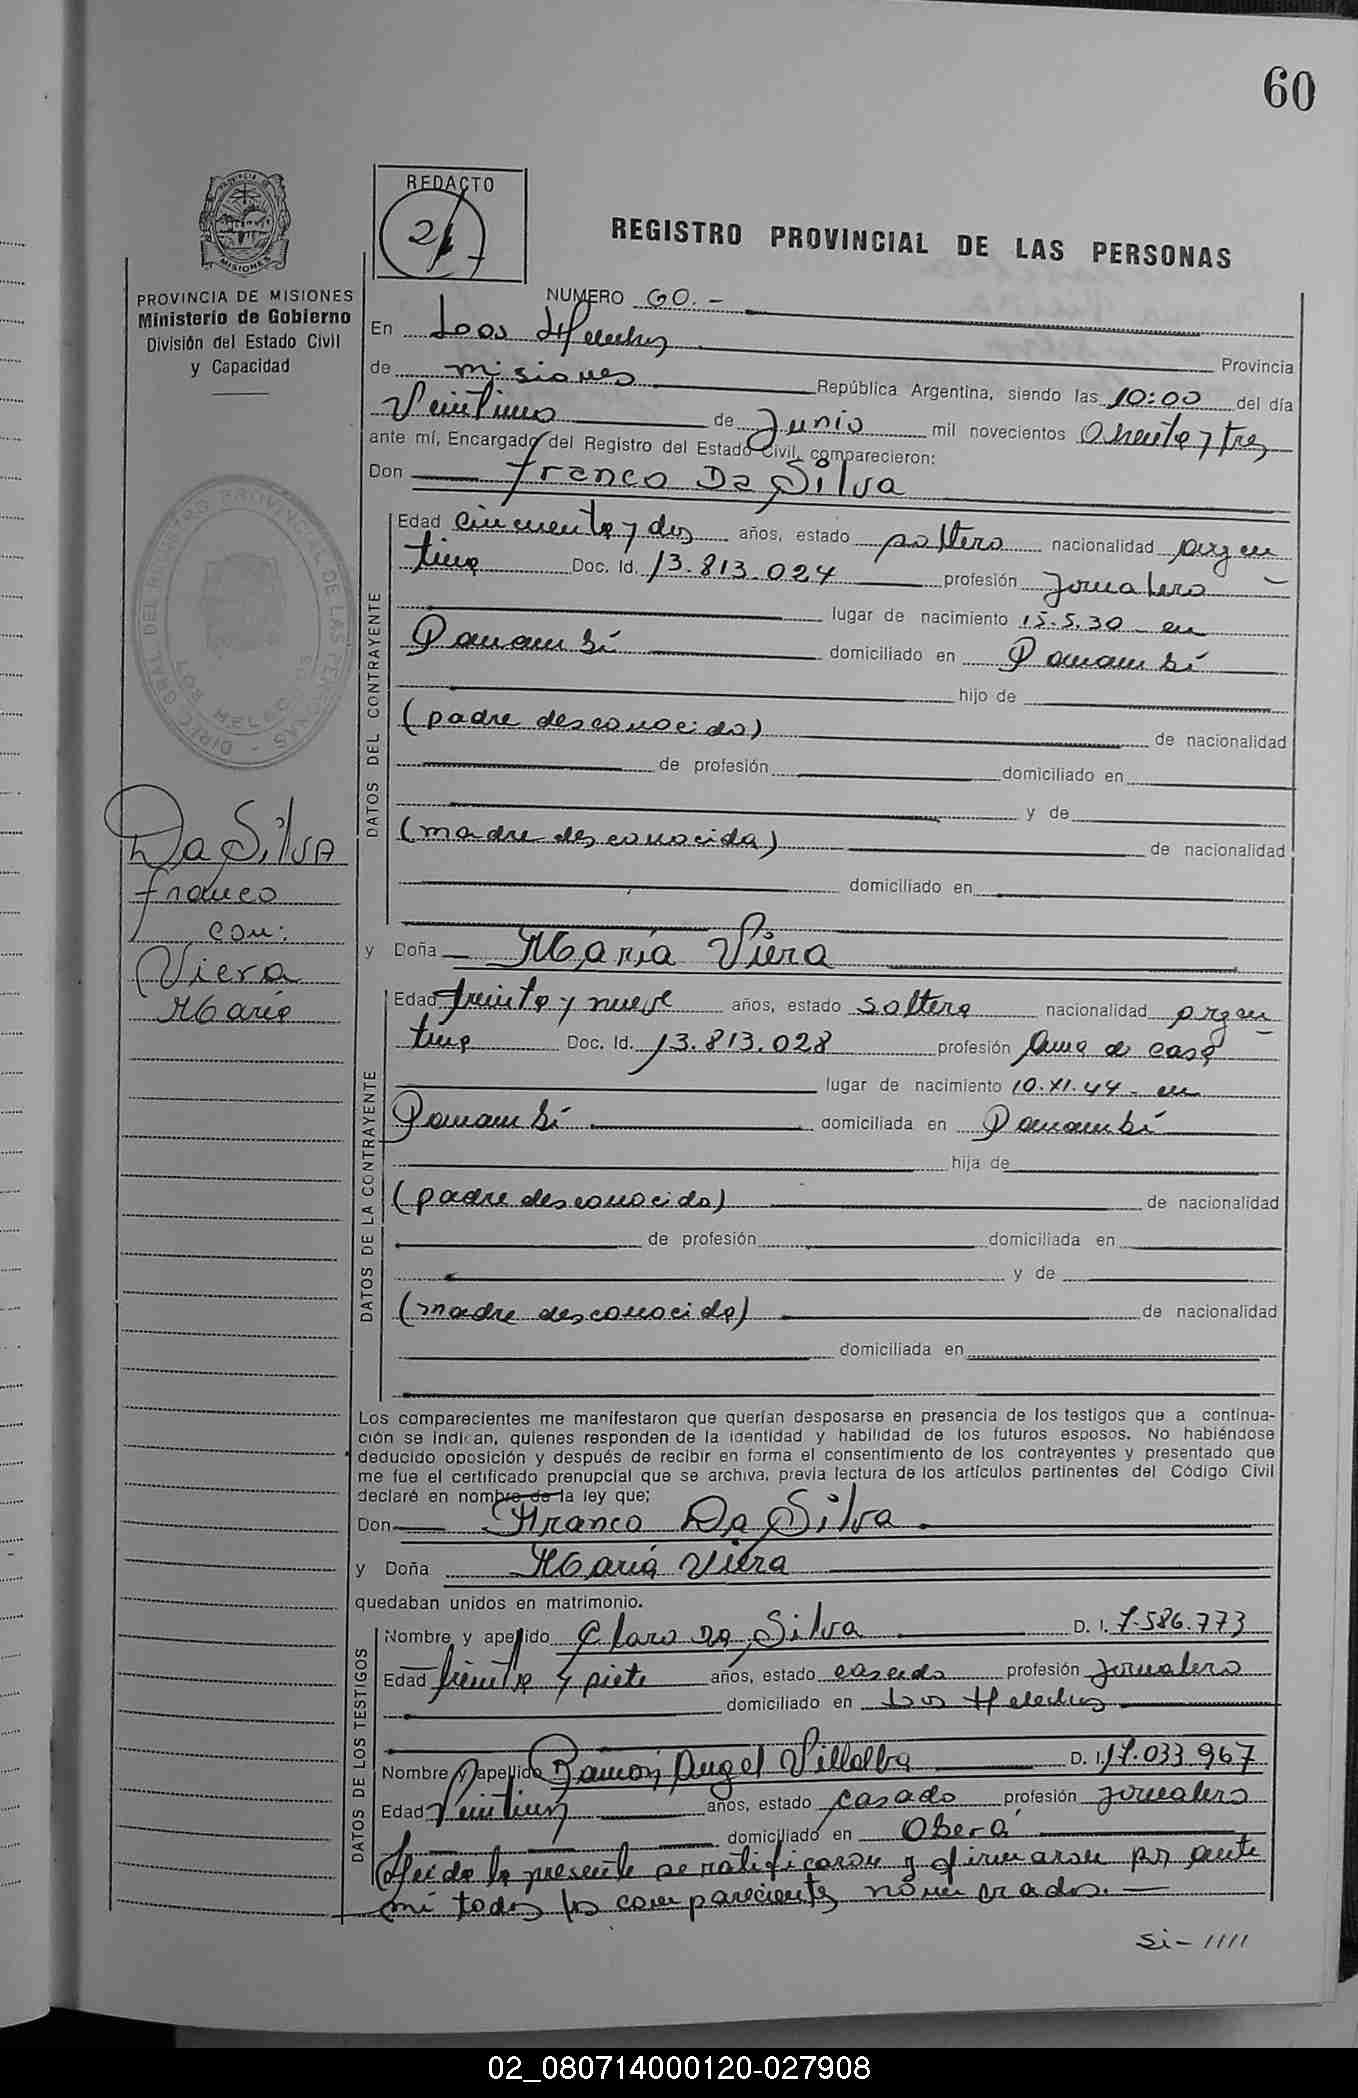 60
REDACTO
REGISTRO PROVINCIAL DE LAS PERSONAS
MISIONES
PROVINCIA DE MISIONES
Ministerio de Gobierno
División del Estado Civil
y Capacidad
NUMERO 60.-
En Los Helechos Provincia
de misiones República Argentina, siendo las 10:00 del día
Veintiuno de Junio mil novecientos Ochenta y tres
ante mí, Encargado del Registro del Estado Civil, comparecieron:
Don Franco Da Silva
DATOS DEL CONTRAYENTE
Edad cincuenta y dos años, estado soltero nacionalidad argen
tina Doc. Id. 13.813.024 profesión Jornalero
lugar de nacimiento 15.5.30 en
Panambí domiciliado en Panambí
hijo de
(padre desconocido) de nacionalidad
de profesión domiciliado en
y de
(madre desconocida) de nacionalidad
domiciliado en
Da Silva
Franco
con:
Viera
María
y Doña María Viera
DATOS DE LA CONTRAYENTE
Edad treinta y nueve años, estado soltera nacionalidad argen
tina Doc. Id. 13.813.028 profesión Ama de casa
lugar de nacimiento 10.XI.44- en
Panambí domiciliada en Panambí
hija de
(padre desconocido) de nacionalidad
de profesión domiciliada en
y de
(madre desconocida) de nacionalidad
domiciliada en
Los comparecientes me manifestaron que querían desposarse en presencia de los testigos que a continua-
ción se indican, quienes responden de la identidad y habilidad de los futuros esposos. No habiéndose
deducido oposición y después de recibir en forma el consentimiento de los contrayentes y presentado que
me fue el certificado prenupcial que se archiva, previa lectura de los artículos pertinentes del Código Civil
declaré en nombre de la ley que:
Don Franco Da Silva
y Doña María Viera
quedaban unidos en matrimonio.
DATOS DE LOS TESTIGOS
Nombre y apellido Claro Da Silva D. I. 7.586.773
Edad treinta y siete años, estado casado profesión Jornalero
domiciliado en Los Helechos
Nombre y apellido Ramón Angel Villalba D. I. 17.033.967
Edad Veintiun años, estado casado profesión Jornalero
domiciliado en Oberá
Leida la presente se ratificaron y firmaron por ante
mí todos los comparecientes nombrados.-
Si-////
02_080714000120-027908